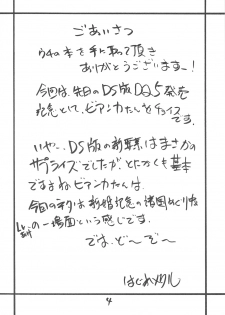 ごあいさつ
ウチの本を手に取って頂き
ありがとうございますー!
今回は、先日のDS版DQ5発売
記念として、ビアンカたんをチョイス
です。
いやー、DS版の新要素はまさかの
サプライズでしたが、とにかくも基本
ですよねビアンカたんは。
今回のネタは新婚記念の諸国めぐり
の一場面という感じです。
では、ど〜ぞ〜
はじめメタル
4